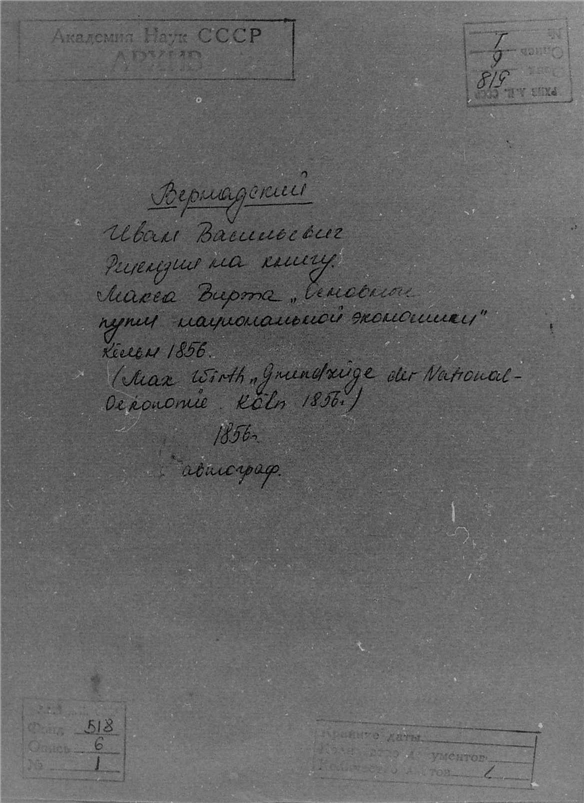 Академия Наук СССР
АРХИВ
№ 1
Опись 6
Фонд 518
АРХИВ А.Н. СССР
Вернадский
Иван Васильевич
Рецензия на книгу.
Макса Вирта „Основные
пути национальной экономики"
Кёльн 1856.
(Max Wirth „Grundzüge der National-
Oekonomie. Köln 1856.)
1856г.
автограф.
Фонд 518
Опись 6
№ 1
Крайние даты
Количество документов
Количество листов